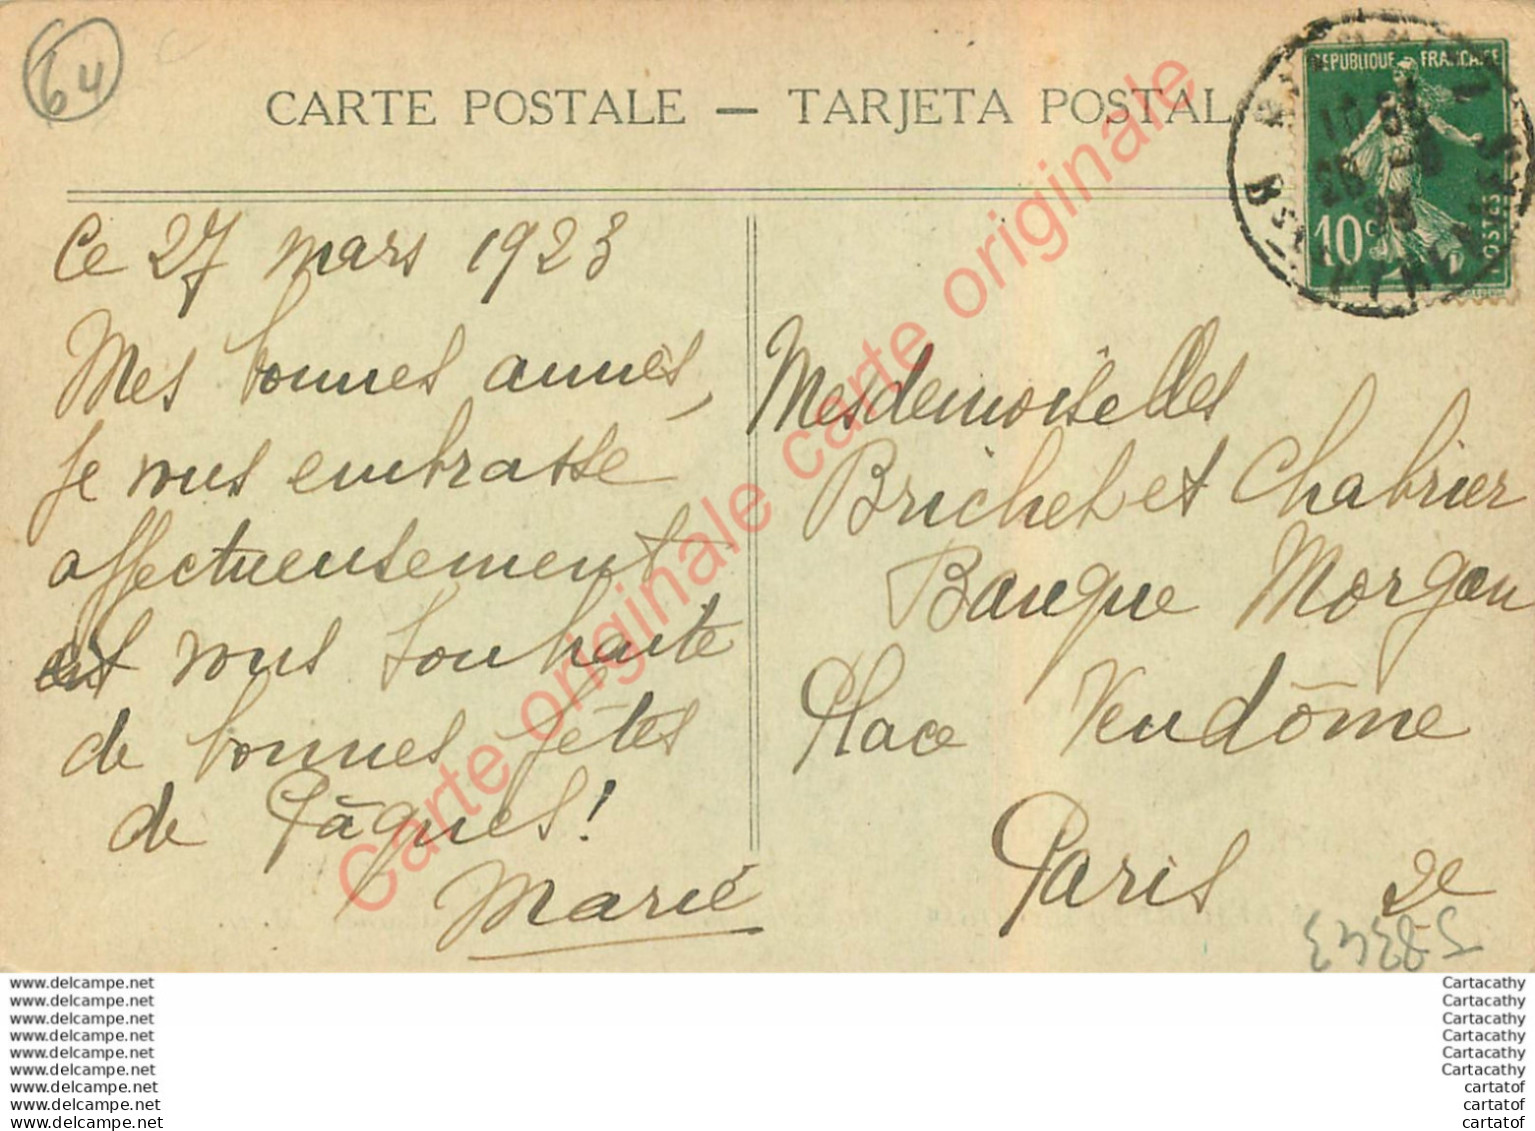 64
CARTE POSTALE — TARJETA POSTAL
REPUBLIQUE FRANCAISE
10c
POSTES
Ce 27 mars 1923
Mes bonnes amies,
je vous embrasse
affectueusement
et vous souhaite
de bonnes fêtes
de Pâques !
Marie
Mesdemoiselles
Brichet et Chabrier
Banque Morgan
Place Vendôme
Paris 2e
Carte originale carte originale Carte originale
www.delcampe.net
www.delcampe.net
www.delcampe.net
www.delcampe.net
www.delcampe.net
www.delcampe.net
www.delcampe.net
www.delcampe.net
www.delcampe.net
Cartacathy
Cartacathy
Cartacathy
Cartacathy
Cartacathy
Cartacathy
cartatof
cartatof
cartatof